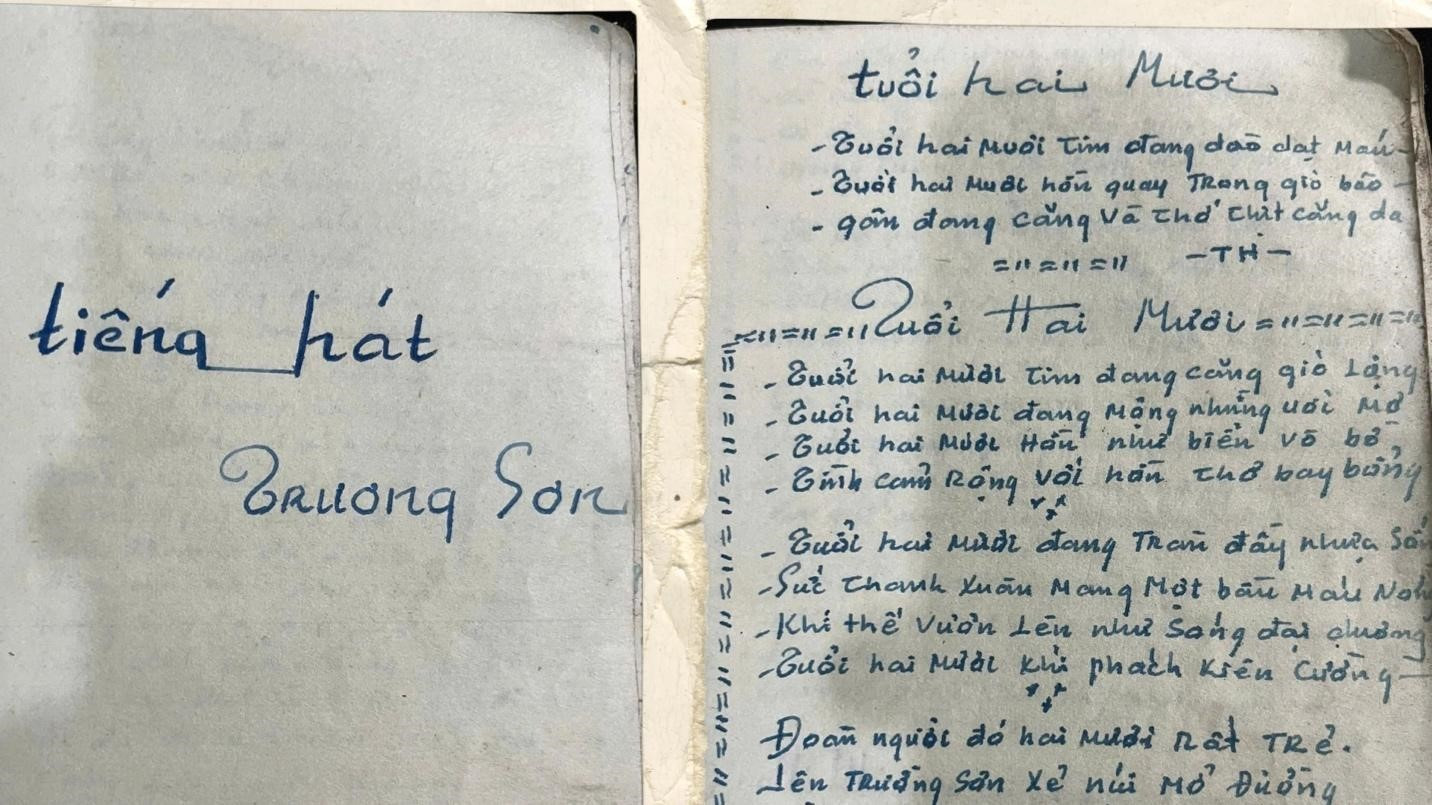 tiếng hát
Trương Sơn
tuổi hai Mươi
- Tuổi hai Mươi Tim đang dào dạt Máu -
- Tuổi hai Mươi hồn quay Trong gió bão -
- gân đang căng và thớ thịt căng da
= " = " = " - TH -
= " = " = " Tuổi Hai Mươi = " = " = " = "
- Tuổi hai Mươi Tim đang căng gió Lộng
- Tuổi hai Mươi đang Mộng những ươi Mơ
- Tuổi hai Mươi Hồn như biển vỗ bờ,
- Tình cảm Rộng với hồn thơ bay bổng
- Tuổi hai Mươi đang Tràn đầy nhựa Sốn
- Sức Thanh Xuân Mang Một bầu Máu Nón
- Khí thế Vươn Lên như Sóng đại dương
- Tuổi hai Mươi Khí phách Kiên Cường -
Đoàn người đó hai Mươi Rất TRẻ.
Lên TRường Sơn Xẻ núi Mở Đường